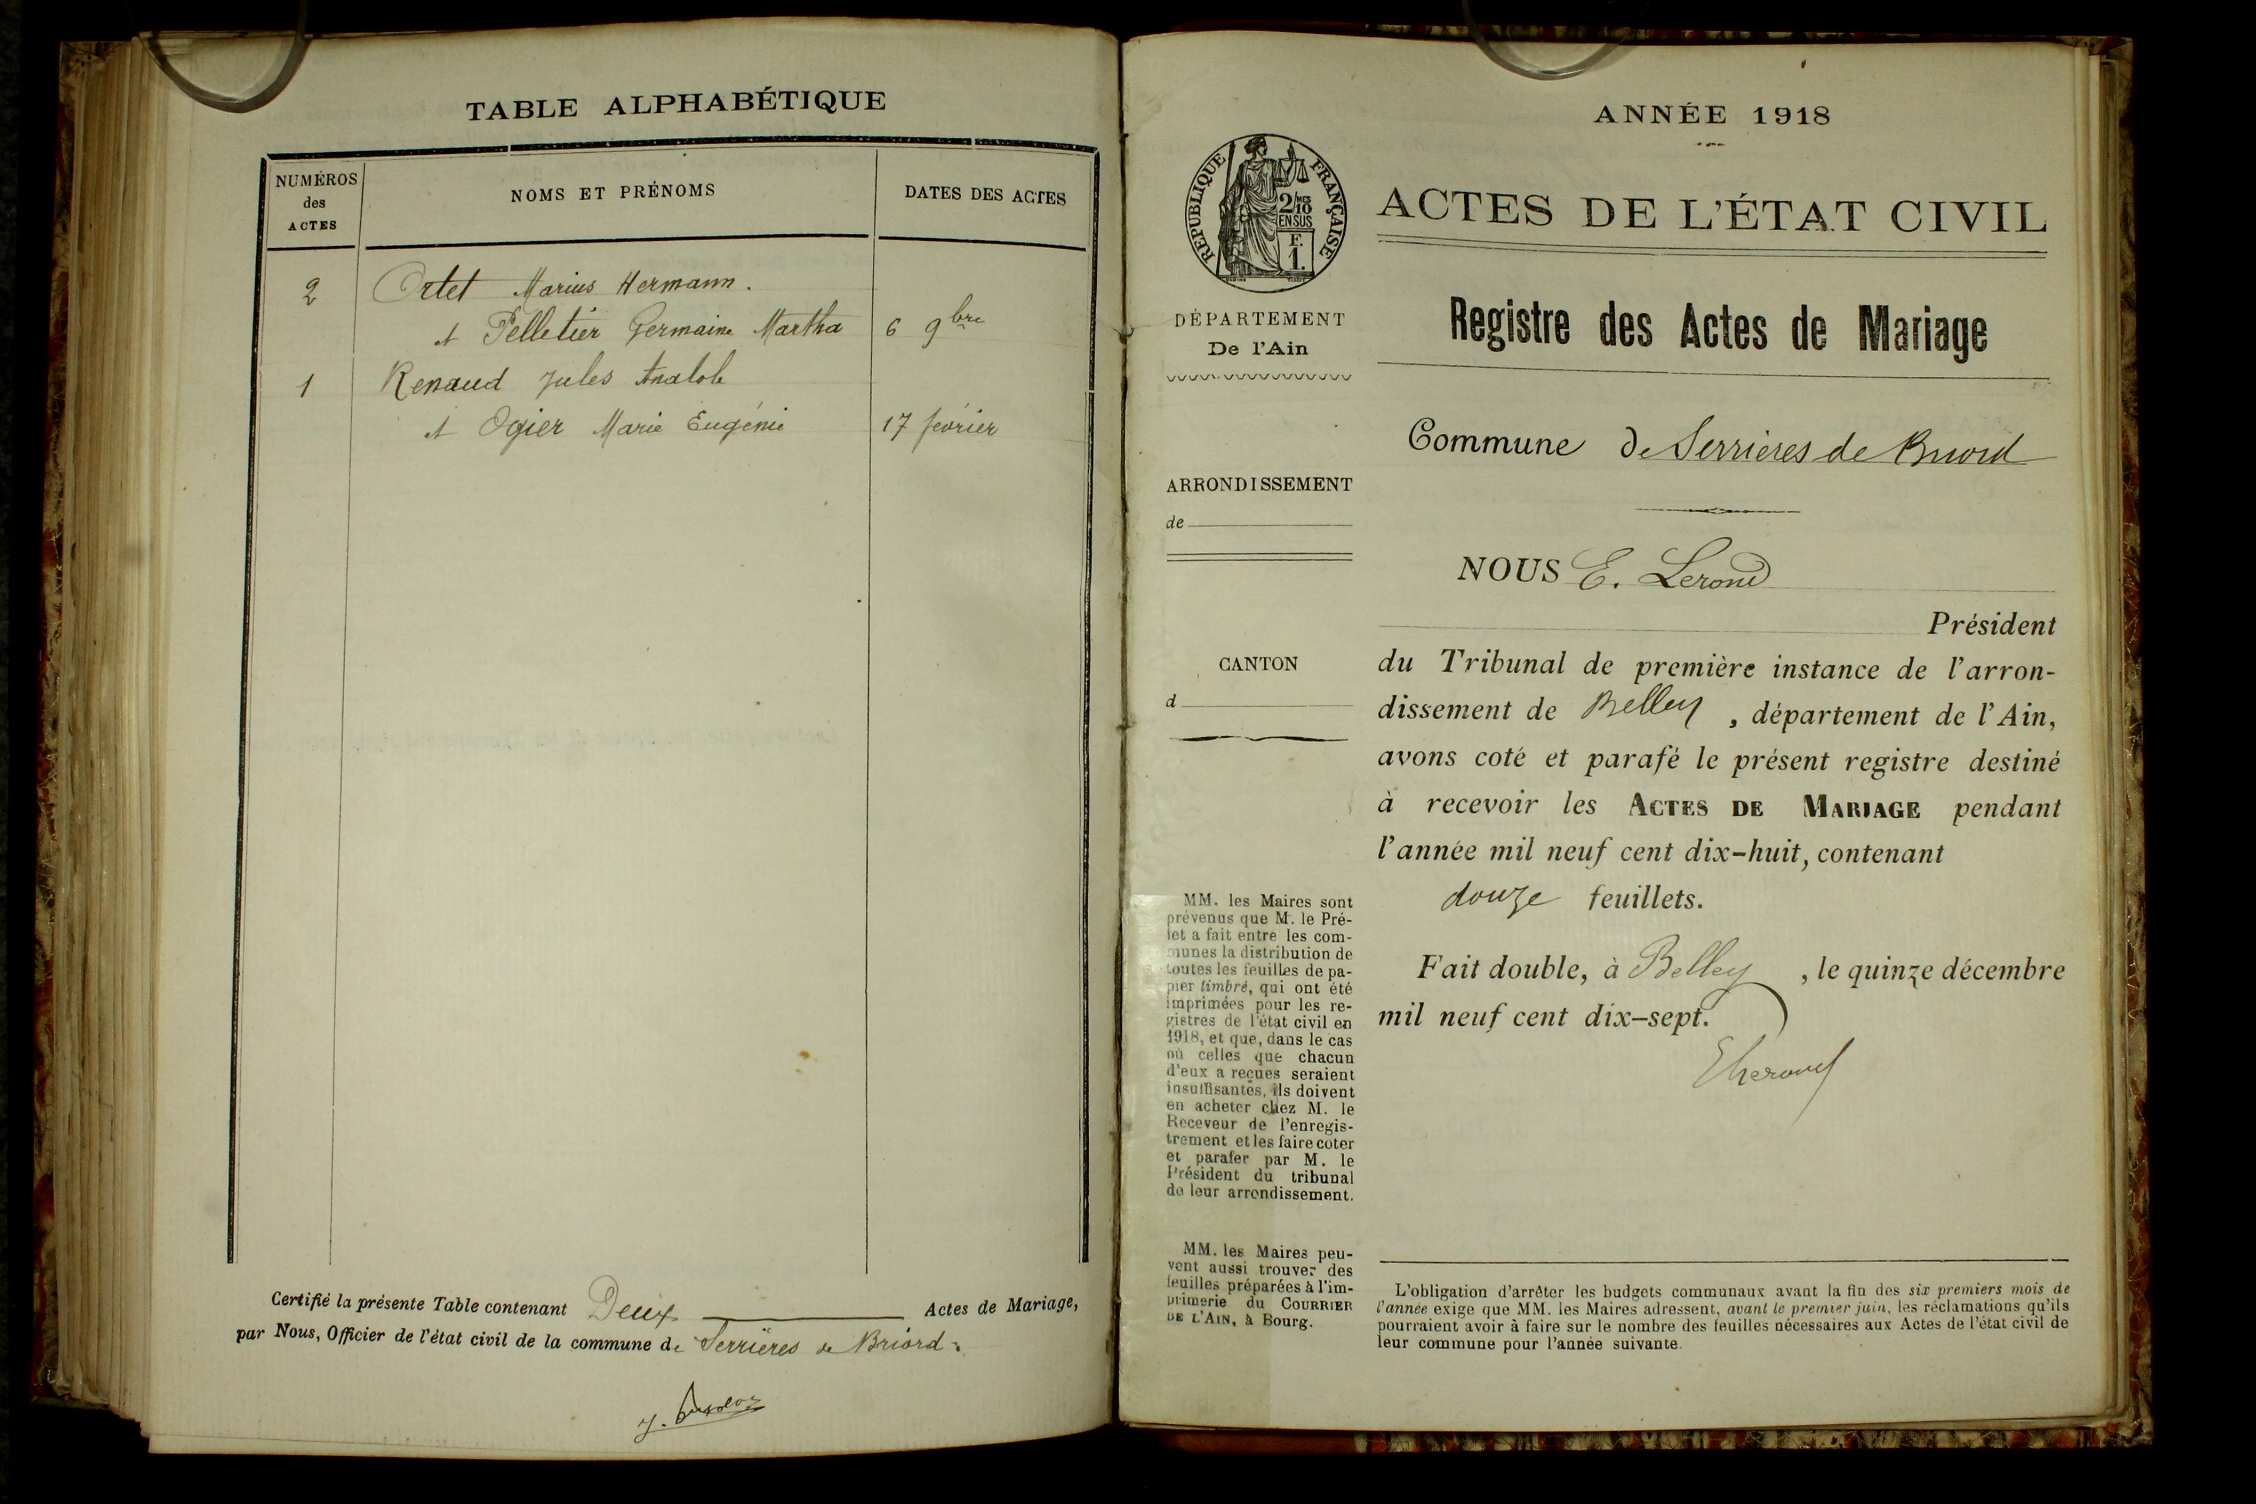 TABLE ALPHABÉTIQUE
NUMÉROS
des
ACTES
NOMS ET PRÉNOMS
DATES DES ACTES
2 Ortet Marius Hermann.
et Pelletier Germaine Martha 6 9bre
1 Renaud Jules Anatole
et Ogier Marie Eugénie 17 février
Certifié la présente Table contenant Deux Actes de Mariage,
par Nous, Officier de l'état civil de la commune de Serrières de Briord.
ANNÉE 1918
RÉPUBLIQUE FRANÇAISE
2/10 MES
EN SUS
F.
1.
ACTES DE L'ÉTAT CIVIL
DÉPARTEMENT
De l'Ain
Registre des Actes de Mariage
Commune de Serrieres de Briord
ARRONDISSEMENT
de
NOUS E. Lerond
Président
CANTON
d
du Tribunal de première instance de l'arron-
dissement de Belley, département de l'Ain,
avons coté et parafé le présent registre destiné
à recevoir les ACTES DE MARIAGE pendant
l'année mil neuf cent dix-huit, contenant
douze feuillets.
Fait double, à Belley, le quinze décembre
mil neuf cent dix-sept.
MM. les Maires sont
prévenus que M. le Pré-
fet a fait entre les com-
munes la distribution de
toutes les feuilles de pa-
pier timbré, qui ont été
imprimées pour les re-
gistres de l'état civil en
1918, et que, dans le cas
où celles que chacun
d'eux a reçues seraient
insuffisantes, ils doivent
en acheter chez M. le
Receveur de l'enregis-
trement et les faire coter
et parafer par M. le
Président du tribunal
de leur arrondissement.
MM. les Maires peu-
vent aussi trouver des
feuilles préparées à l'im-
primerie du COURRIER
DE L'AIN, à Bourg.
L'obligation d'arrêter les budgets communaux avant la fin des six premiers mois de
l'année exige que MM. les Maires adressent, avant le premier juin, les réclamations qu'ils
pourraient avoir à faire sur le nombre des feuilles nécessaires aux Actes de l'état civil de
leur commune pour l'année suivante.